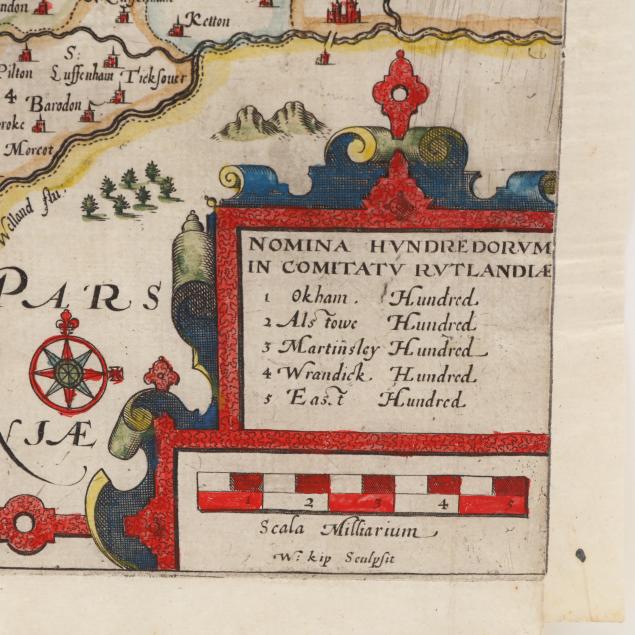 ndon
Ketton
Pilton
S:
Luffenham
Ticksouer
4
Barodon
roke
Morcot
Welland flu.
PARS
NIÆ
NOMINA HVNDREDORVM
IN COMITATV RVTLANDIÆ
1 Okham. Hundred
2 Alstowe Hundred
3 Martinsley Hundred
4 Wrandick Hundred
5 East Hundred
1 2 3 4 5
Scala Milliarium
W: kip Sculpsit